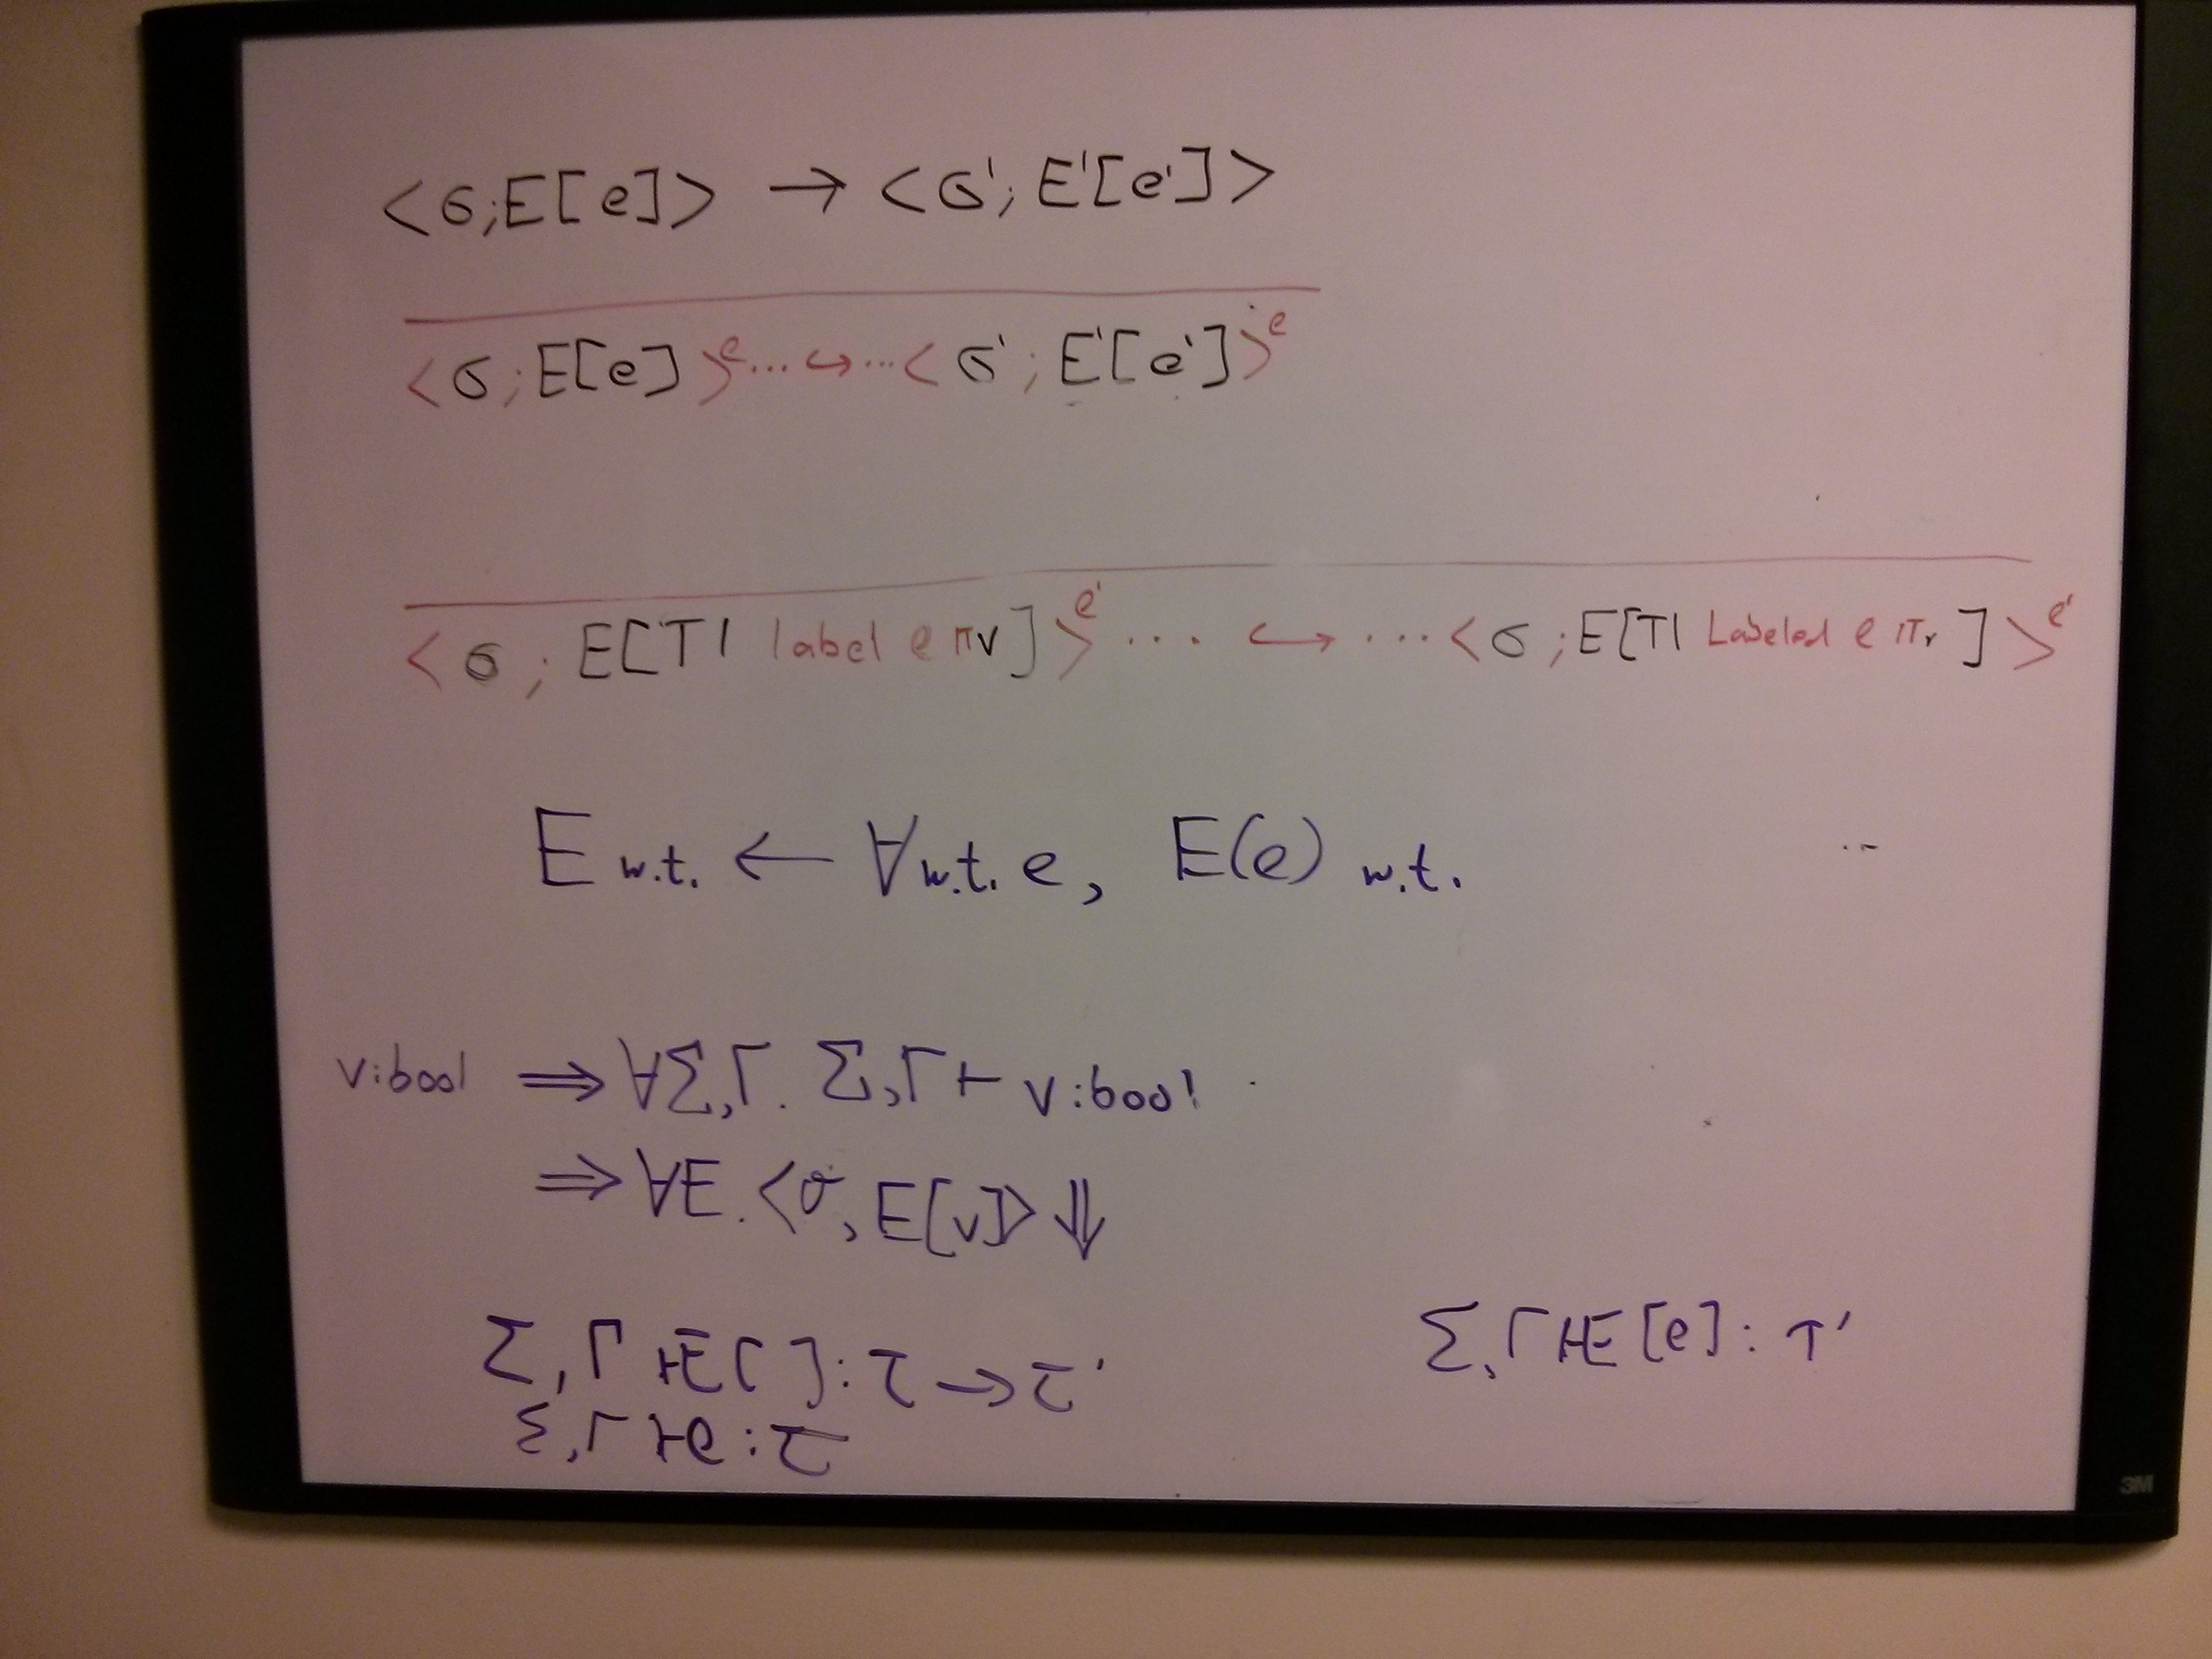 <σ;E[e]> → <σ'; E'[e']>
<σ;E[e]>ᵉ...↪...<σ';E'[e']>ᵉ
<σ; E[TI label e πv]>ᵉ' ... ↪ ...<σ;E[TI Labeled e πv]>ᵉ'
E w.t. ← ∀w.t. e, E(e) w.t.
v:bool ⇒ ∀Σ,Γ. Σ,Γ⊢ v:bool
⇒ ∀E. <σ, E[v]> ⇓
Σ,Γ ⊢E[]:τ→τ'
Σ,Γ⊢E[e]: τ'
Σ,Γ⊢e:τ
3M